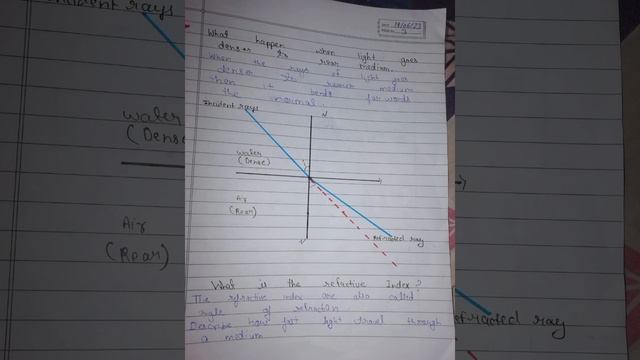 incident rays
14/06/23
3
What happen when light goes
denser to rarer medium.
When the rays of light goes
denser to rearer medium
then it bends forwords
the normal.
Incident rays
N
water
(Dense)
water
(Dense
Air
(Rear)
Air
(Rear)
Refracted ray
efracted ray
What is the refractive Index?
The refractive index are also called
of refraction
Describe how fast light travel through
a medium